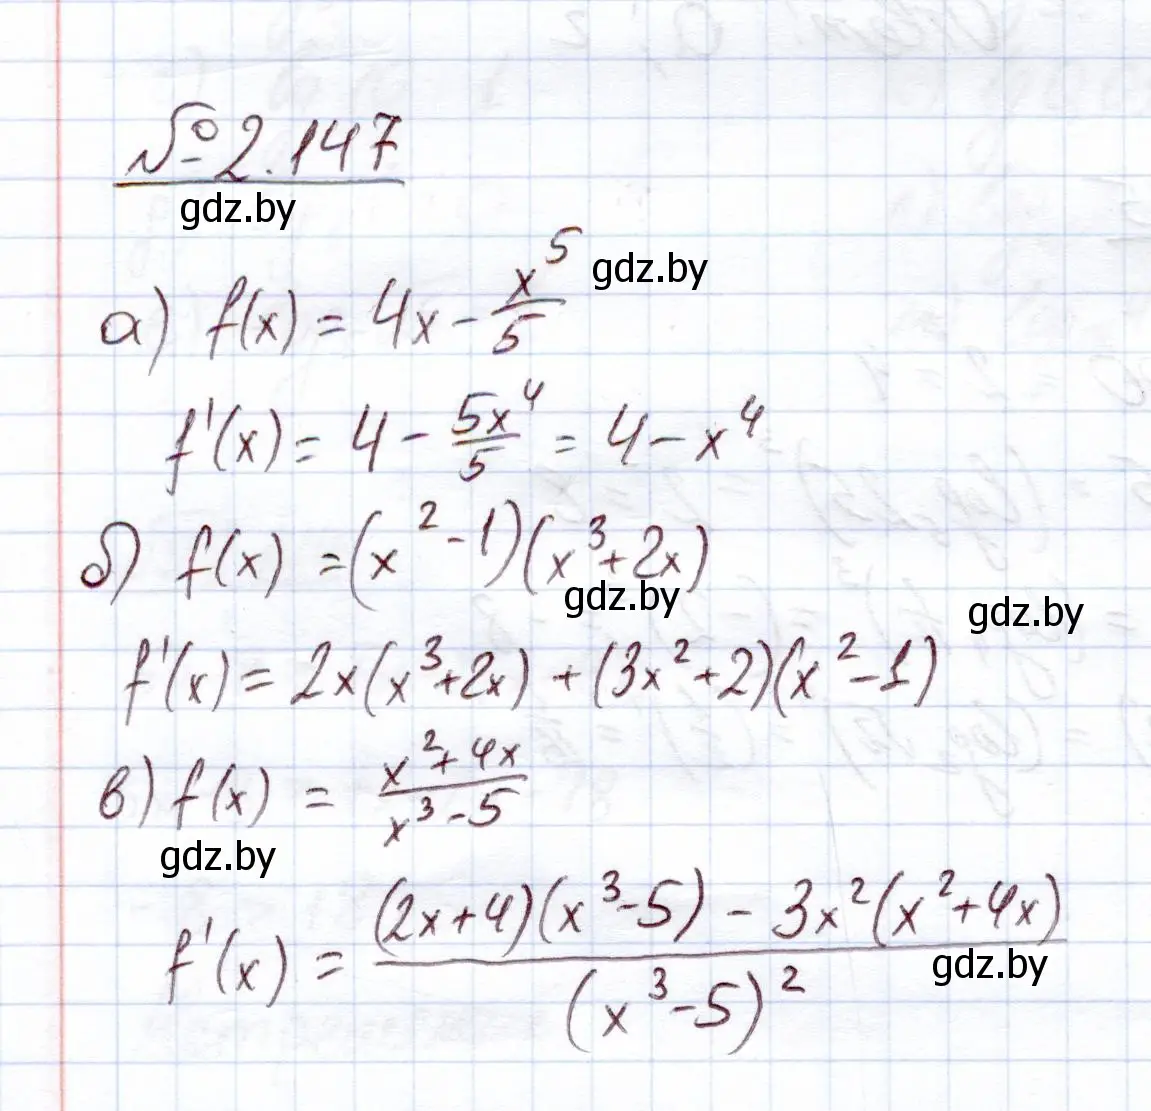 № 2.147
gdz.by
а) f(x) = 4x - x⁵/5 gdz.by
f'(x) = 4 - 5x⁴/5 = 4 - x⁴
б) f(x) = (x² - 1)(x³ + 2x)
gdz.by gdz.by
f'(x) = 2x(x³ + 2x) + (3x² + 2)(x² - 1)
в) f(x) = (x² + 4x)/(x³ - 5)
gdz.by
f'(x) = ((2x + 4)(x³ - 5) - 3x²(x² + 4x))/(x³ - 5)²
gdz.by